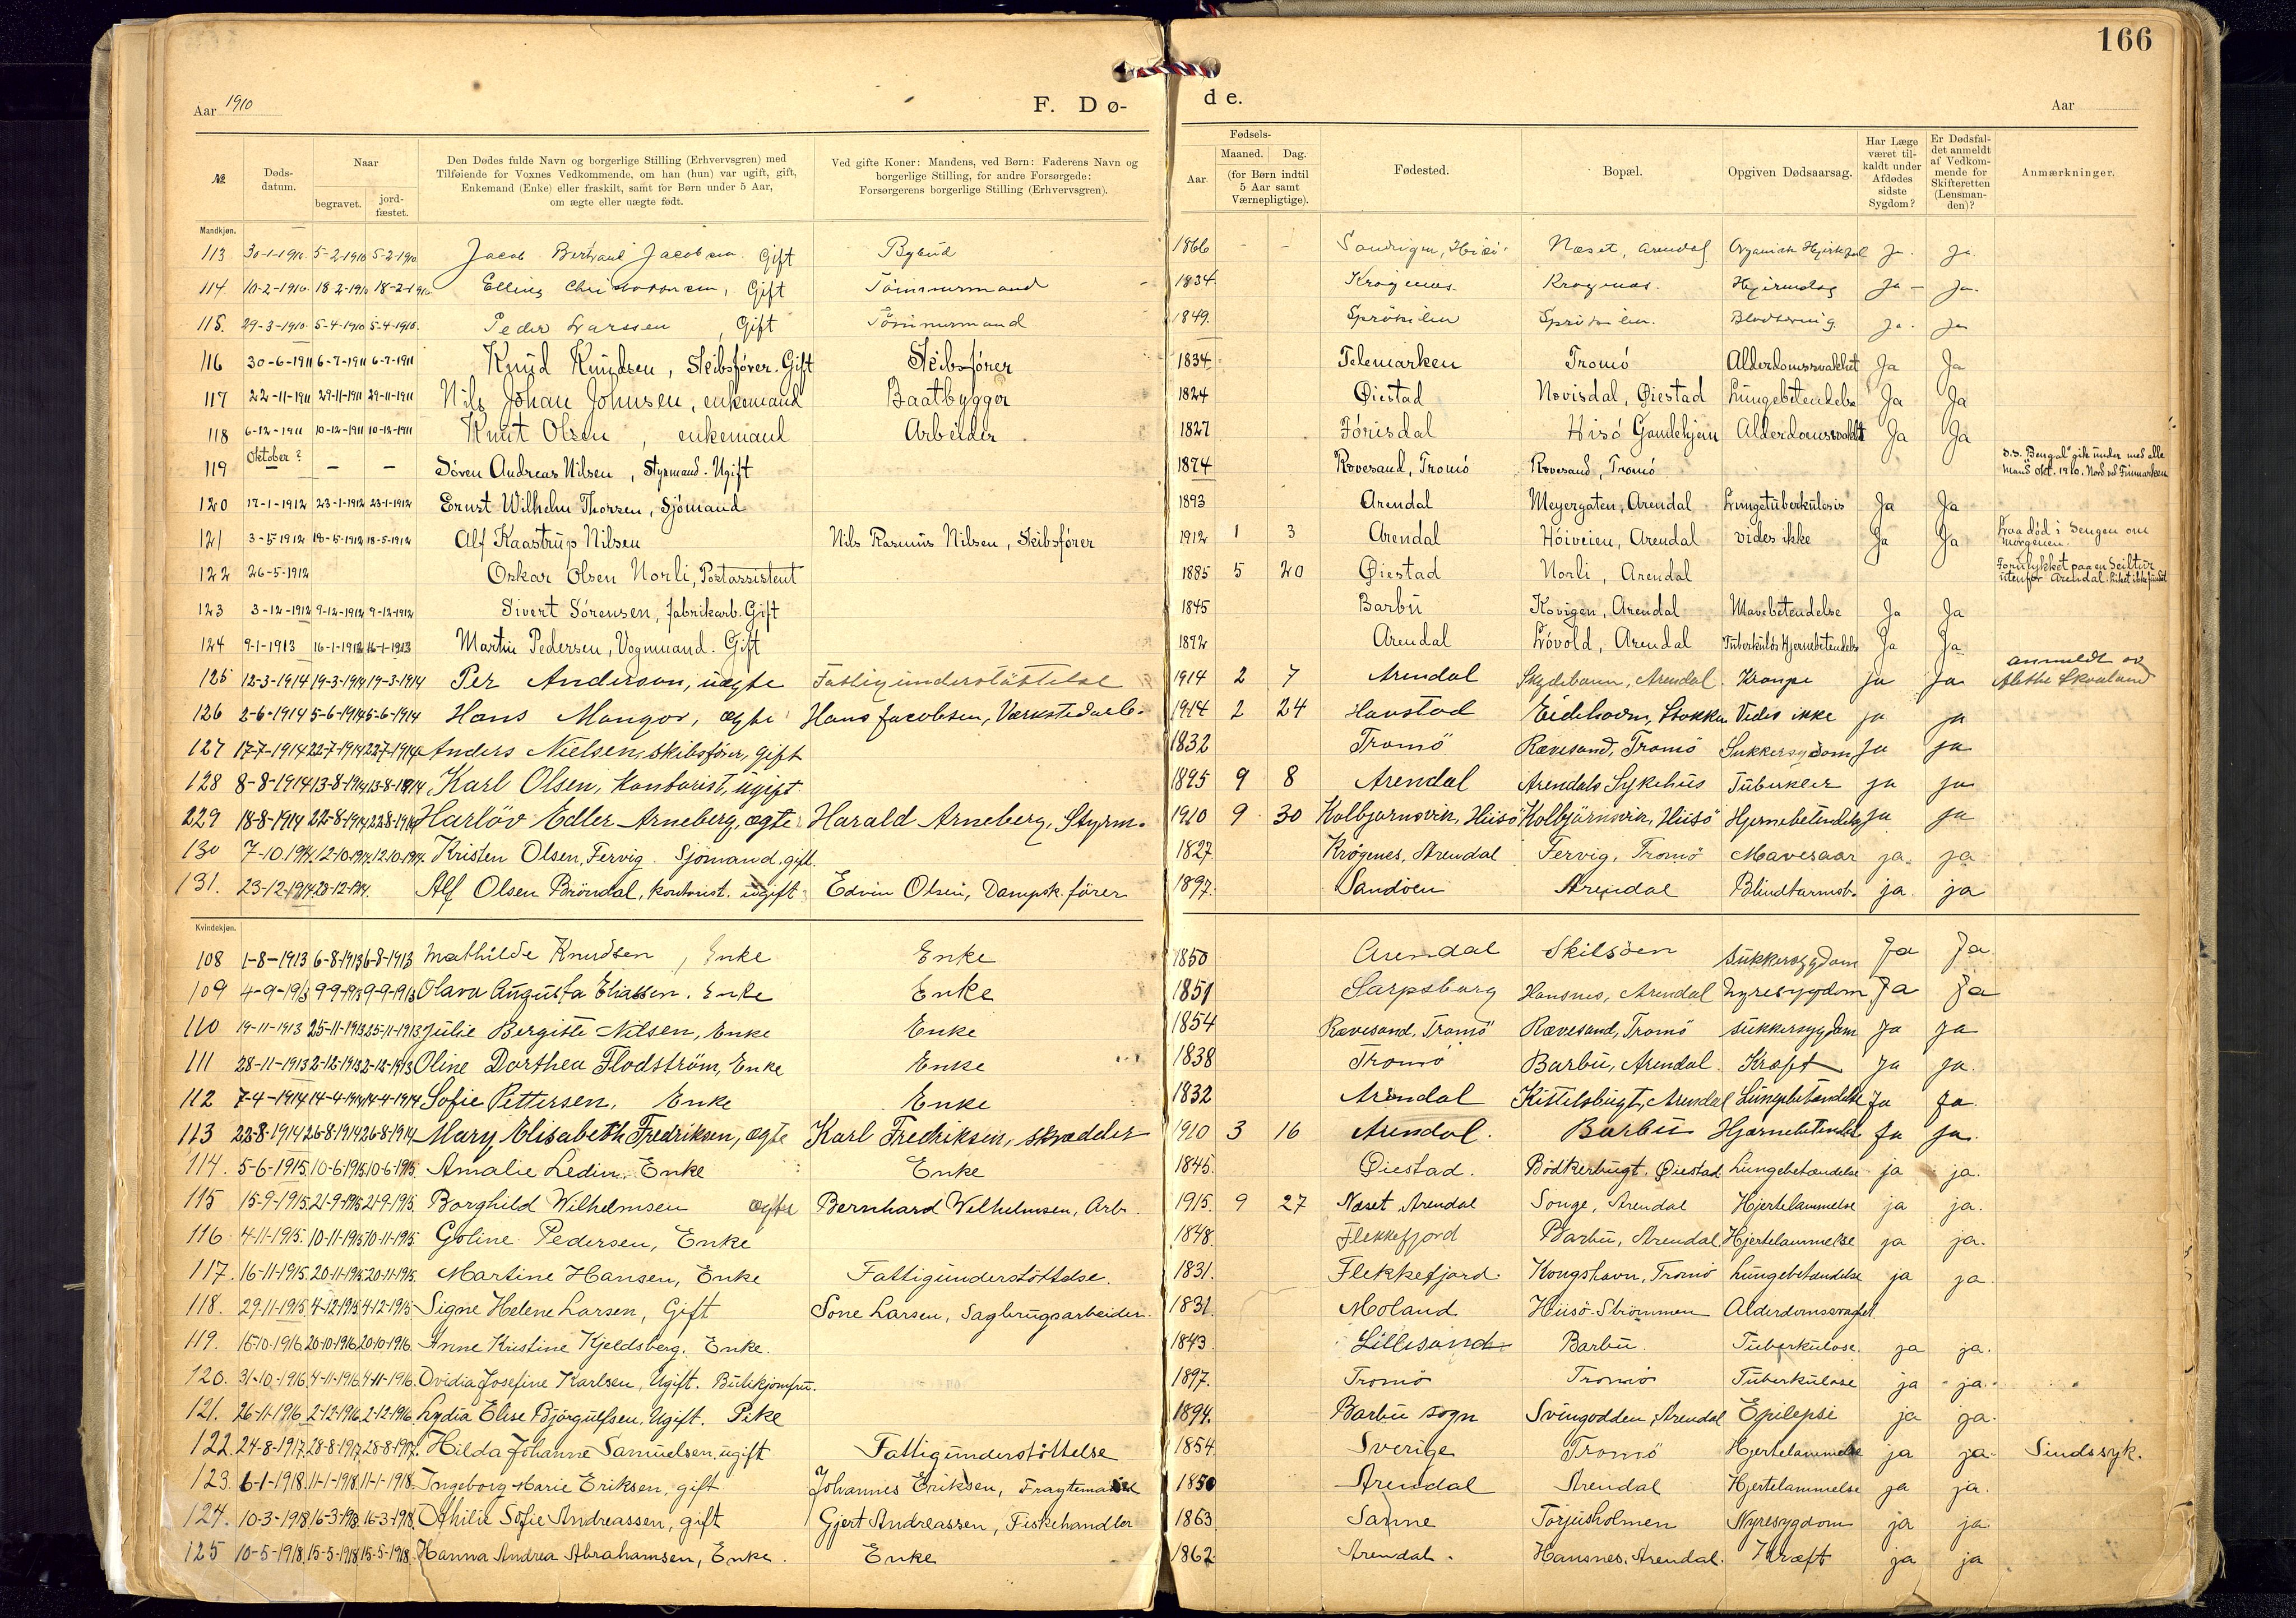 166
Aar 1910 F. Dø- de. Aar
№ Døds-datum. Naar begravet. jord-fæstet. Den Dødes fulde Navn og borgerlige Stilling (Erhvervsgren) med Tilføiende for Voxnes Vedkommende, om han (hun) var ugift, gift, Enkemand (Enke) eller fraskilt, samt for Børn under 5 Aar, om ægte eller uægte født. Ved gifte Koner: Mandens, ved Børn: Faderens Navn og borgerlige Stilling, for andre Forsørgede: Forsørgerens borgerlige Stilling (Erhvervsgren). Fødsels- Aar. Maaned. Dag. (for Børn indtil 5 Aar samt Værnepligtige). Fødested. Bopæl. Opgiven Dødsaarsag. Har Læge været til-kaldt under Afdødes sidste Sygdom? Er Dødsfal-det anmeldt af Vedkom-mende for Skifteretten (Lensman-den)? Anmærkninger.
Mandkjøn.
113 30-1-1910 5-2-1910 5-2-1910 Jacob Bertrand Jacobsen. Gift Bybud 1866 - - Næset, Arendal Organisk Ja. Ja.
114 10-2-1910 18-2-1910 18-2-1910 Elling, Gift Tömmermand 1834 Krogenæs Krogenæs. Ja - Ja.
115. 29-3-1910 5-4-1910 5-4-1910. Peder Larssen, Gift Tömmermand 1849. Ja. Ja
116 30-6-1911 6-7-1911 6-7-1911 Knud Knudsen, Skibsfører. Gift Skibsfører 1834 Telemarken Tromö Alderdomssvakhet Ja Ja
117 22-11-1911 29-11-1911 29-11-1911 Nils Johan Johnsen, enkemand Baatbygger 1824 Øiestad Novisdal, Øiestad Lungebetendelse Ja Ja
118 6-12-1911 10-12-1911 10-12-1911 Knut Olsen, enkemand Arbeider 1827 Hisö Alderdomssvakht Ja Ja
119 Oktober? - - Sören Andreas Nilsen, Styrmand. Ugift 1874 Rævesand, Tromö Rævesand, Tromö D.S. "Bengal" gik under med alle mand okt. 1910. Nord ved Finmarken
120 17-1-1912 23-1-1912 23-1-1912 Ernst Wilhelm Thorsen, Sjömand 1893 Arendal Meyergaten, Arendal Lungetuberkulosis Ja Ja
121 3-5-1912 18-5-1912 18-5-1912 Alf Kaastrup Nilsen Nils Rasmus Nilsen, Skibsfører 1912 1 3 Arendal Höiveien, Arendal vides ikke Ja Ja Laa död i Sengen om morgenen.
122 26-5-1912 Oskar Olsen Norli, Postassistent 1885 5 20 Øiestad Norli, Arendal Forulykket paa en Seiltur utenfor Arendal. Liket ikke fundet
123 3-12-1912 9-12-1912 9-12-1912 Sivert Sörensen, fabrikarb. Gift 1845 Barbu Kovigen, Arendal Mavebetendelse Ja Ja
124 9-1-1913 16-1-1913 16-1-1913 Martin Pedersen, Vognmand. Gift 1872 Arendal Lövold, Arendal Tuberkulös Hjernebetendelse Ja Ja
125 12-3-1914 19-3-1914 19-3-1914 Per Anderson, uægte Fattigunderstöttelse 1914 2 7 Arendal Skydebanen, Arendal. Krampe ja Ja anmeldt av Alethe Skaaland
126 2-6-1914 5-6-1914 5-6-1914 Hans Mangor, ægte Hans Jacobsen, Værkstedarb. 1914 2 24 Haustad Eidehavn, Stokken Vides ikke ja ja
127 17-7-1914 22-7-1914 22-7-1914 Anders Nielsen, Skibsfører, gift 1832 Tromö Rævesand, Tromö Sukkersygdom Ja ja
128 8-8-1914 13-8-1914 13-8-1914 Karl Olsen, Kontorist, ugift. 1895 9 8 Arendal Arendals Sykehus Tuberkler ja ja
229 18-8-1914 22-8-1914 22-8-1914 Harlöv Edler Arneberg, ægte Harald Arneberg, Styrm. 1910 9 30 Kolbjørnsvik, Hiisö Kolbjörnsvik, Hiisö Hjernebetendelse Ja ja
130 7-10-1914. 12-10-1914. 12-10-1914. Kristen Olsen, Fervig. Sjömand, gift. 1827. Krøgenes, Arendal Fervig, Tromö Mavesaar ja. ja
131. 23-12-1914. 28-12-1914. Alf Olsen Bröndal, kontorist. ugift Edvin Olsen, Dampsk. förer 1897. Sandöen Arendal Blindtarmsb. ja. ja
Kvindekjøn.
108 1-8-1913 6-8-1913 6-8-1913 Mathilde Knudsen, Enke Enke 1850 Arendal Skilsöen Sukkersygdom Ja Ja
109 4-9-1913 9-9-1913 9-9-1913 Olava Augusta Eliassen. Enke Enke 1851 Sarpsborg Hansnes, Arendal Nyresygdom Ja Ja
110 19-11-1913 25-11-1913 25-11-1913 Julie Bergitte Nilsen, Enke Enke 1854 Rævesand, Tromö Rævesand, Tromö sukkersygdom Ja ja
111 28-11-1913 2-12-1913 2-12-1913 Oline Dorthea Flodström, Enke Enke 1838 Tromö Barbu, Arendal. Kræft Ja ja.
112 7-4-1914 14-4-1914 14-4-1914 Sofie Pettersen, Enke Enke 1832 Arendal Kittelsbugt, Arendal Lungebetændelse Ja Ja
113 22-8-1914 26-8-1914 26-8-1914 Mary Elisabeth Fredriksen, ægte Karl Fredriksen, skrædder 1910 3 16 Arendal. Barbu Hjærnebetændelse Ja Ja.
114. 5-6-1915. 10-6-1915. 10-6-1915. Amalie Ledin. Enke Enke 1845. Øiestad. Bödkerbugt. Øiestad Lungebetændelse ja ja.
115 15-9-1915. 21-9-1915 21-9-1915. Borghild Wilhelmsen ægte Bernhard Wilhelmsen, Arb. 1915. 9 27 Næset, Arendal Songe, Arendal Hjertelammelse ja ja.
116 4-11-1915. 10-11-1915 10-11-1915. Goline Pedersen, Enke 1848. Flekkefjord Barbu, Arendal. Hjertelammelse ja ja.
117. 16-11-1915. 20-11-1915 20-11-1915. Martine Hansen, Enke Fattigunderstöttelse. 1831. Flekkefjord. Kongshavn, Tromö Lungebetændelse ja ja.
118. 29-11-1915. 4-12-1915 4-12-1915 Signe Helene Larsen, Gift Sone Larsen, Sagbrugsarbeider. 1831. Moland Hiisö-Strömmen Alderdomssvaghet
119. 15-10-1916. 20-10-1916 20-10-1916. Anne Kristine Kjeldsberg. Enke. 1843. Lillesand Barbu. Tuberkulose. ja ja.
120. 31-10-1916. 4-11-1916. 4-11-1916. Ovidia Josefine Karlsen, Ugift. Butikjomfru. 1897. Tromö Tromö Tuberkulose ja ja.
121. 26-11-1916. 2-12-1916. 2-12-1916. Lydia Elise Bjørgulfsen. Ugift. Pike 1894. Barbu sogn Svingodden, Arendal Epilepsi ja ja.
122. 24-8-1917. 28-8-1917. 28-8-1917. Hilda Johanne Samuelsen. ugift Fattigunderstöttelse 1854. Sverige Tromö Hjertelammelse ja ja. Sindssyk.
123. 6-1-1918. 11-1-1918. 11-1-1918. Ingeborg Marie Eriksen, gift Johannes Eriksen, Fragtemand 1850 Arendal Arendal Hjertelammelse ja ja.
124. 10-3-1918. 16-3-1918. 16-3-1918. Othilie Sofie Andreassen, gift Gjert Andreassen, Fiskehandler 1863 Sanne Torjusholmen Nyresygdom ja ja.
125 10-5-1918. 15-5-1918. 15-5-1918. Hanna Andrea Abrahamsen, Enke. Enke 1862 Arendal. Hansnes. Arendal. Kræft ja ja